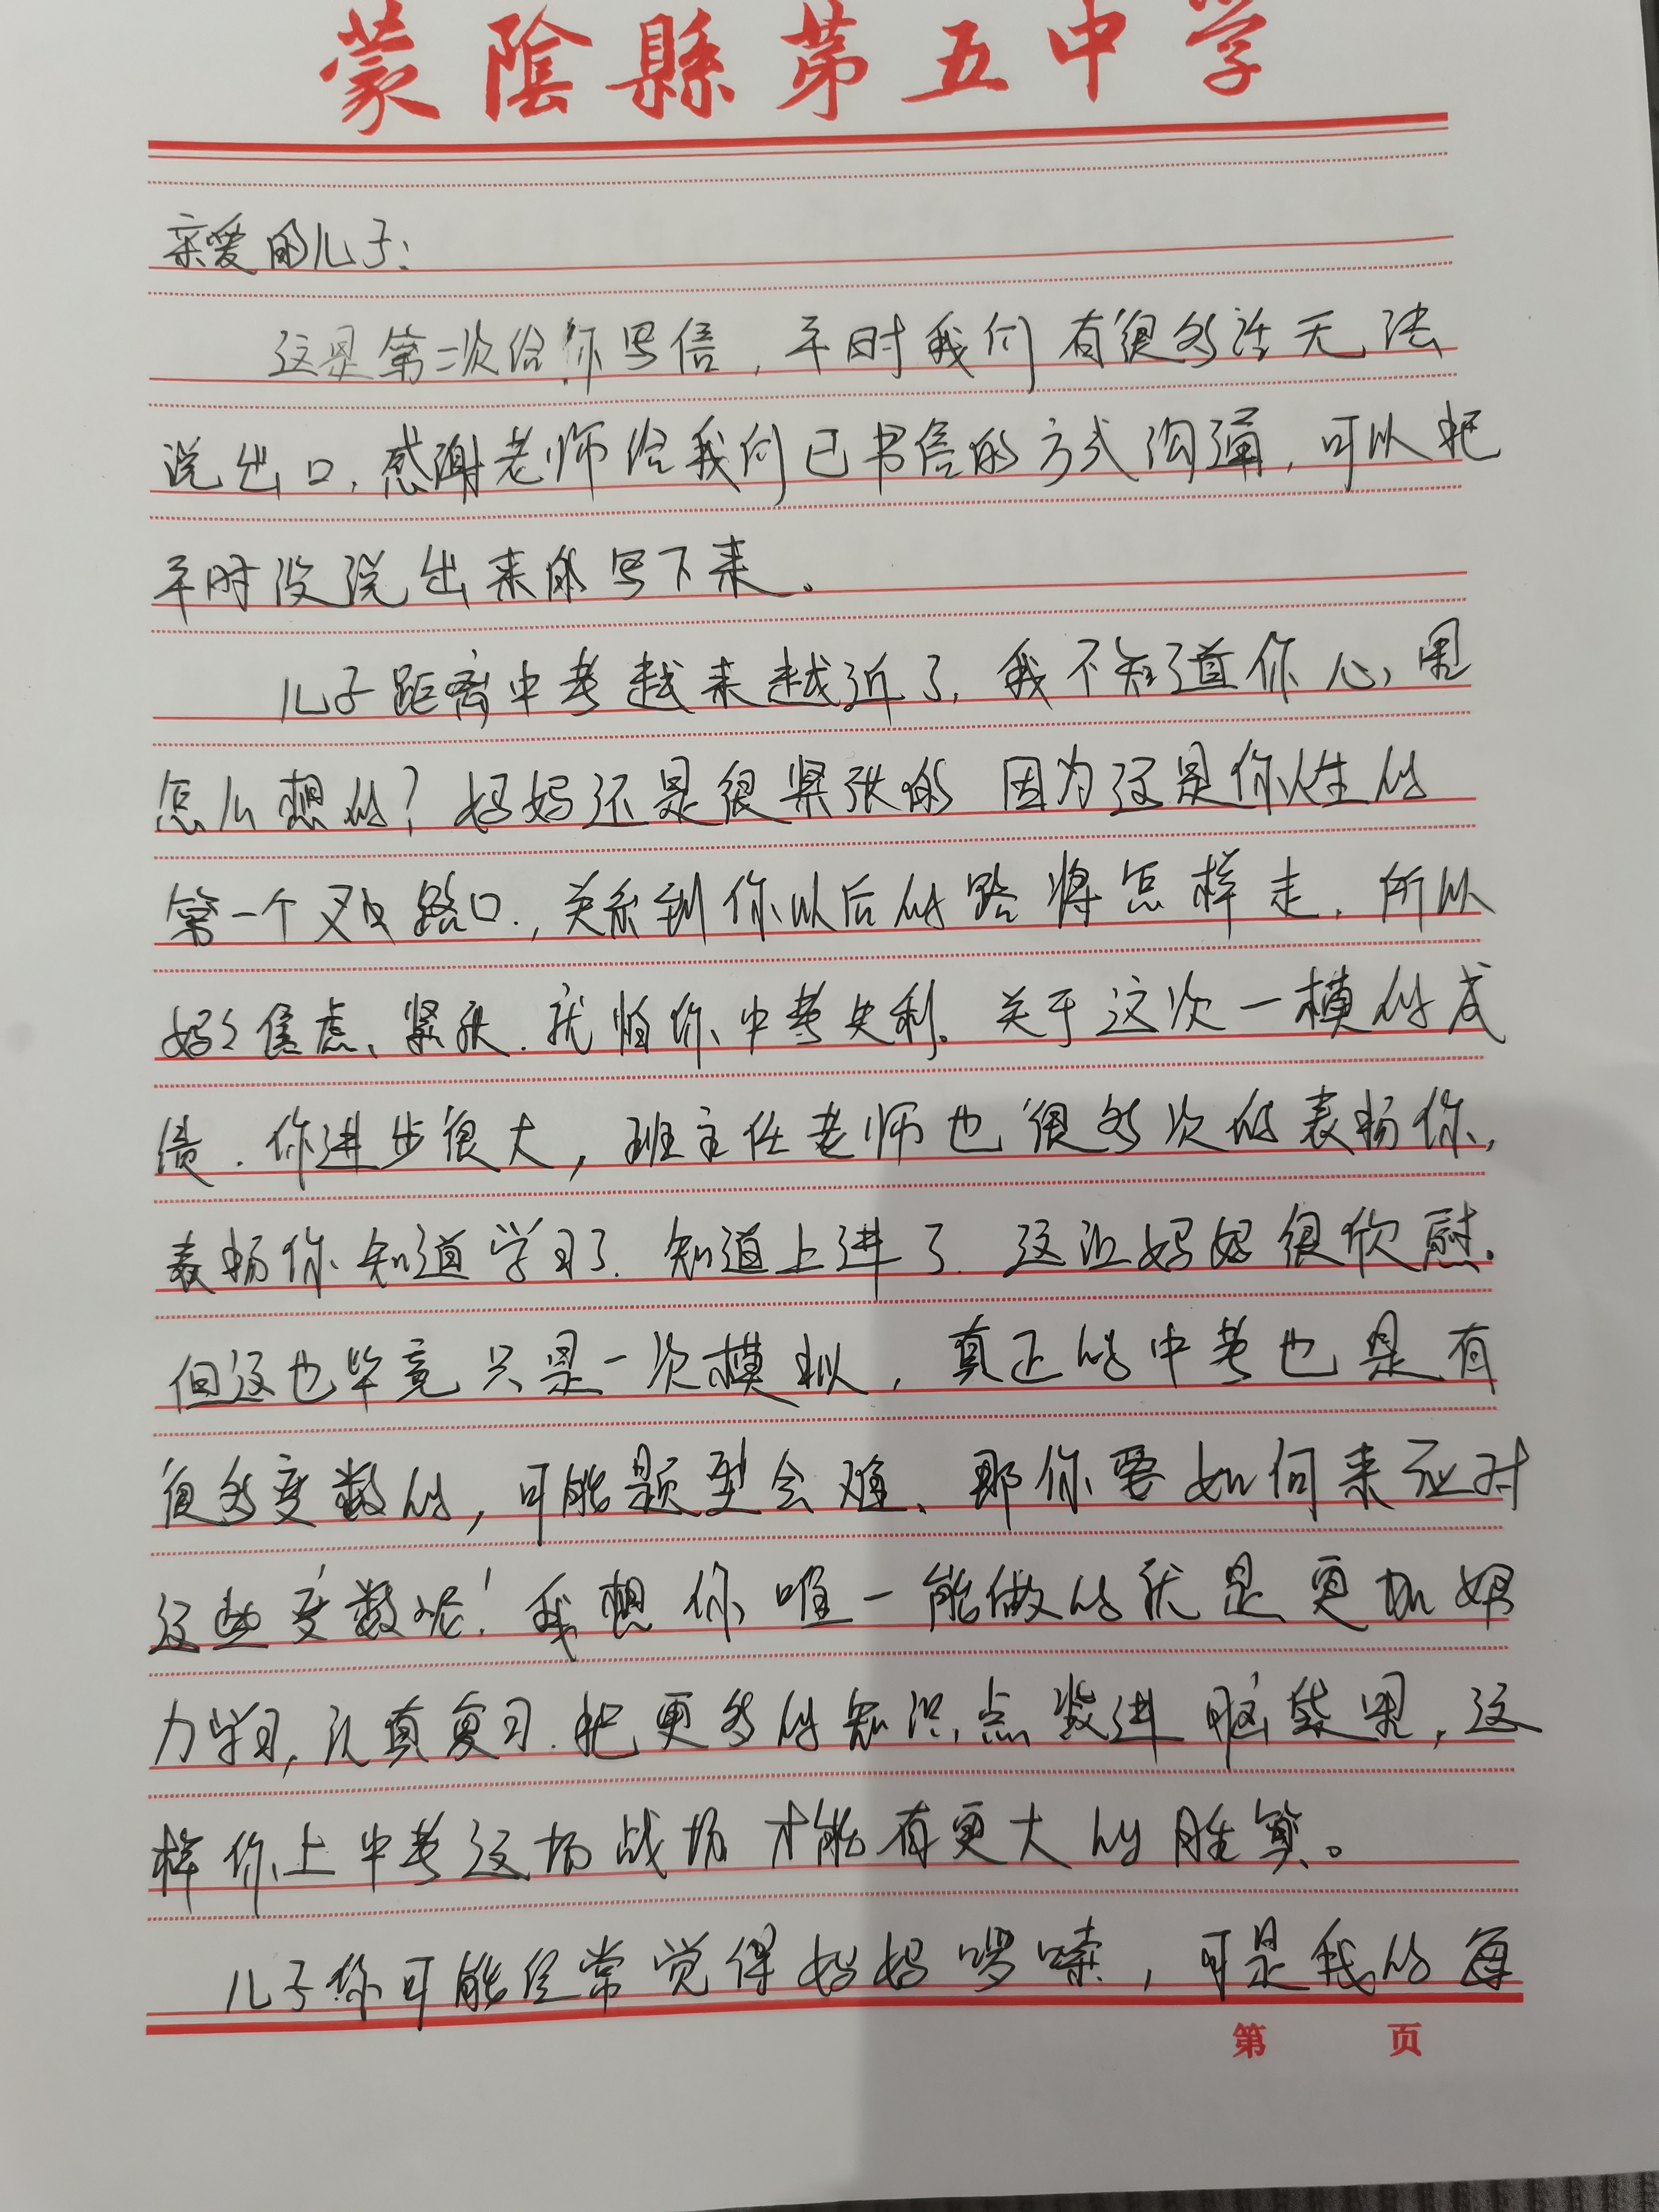 蒙陰縣第五中学
亲爱的儿子:
这是第二次给你写信,平时我们有很多话无法
说出口,感谢老师给我们已书信的方式沟通,可以把
平时没说出来的写下来。
儿子距离中考越来越近了,我不知道你心里
怎么想的?妈妈还是很紧张的 因为这是你人生的
第一个叉路口,关系到你以后的路将怎样走,所以
妈妈焦虑、紧张,就怕你中考失利。关于这次一模的成
绩,你进步很大,班主任老师也很多次的表扬你,
表扬你知道学习了,知道上进了,这让妈妈很欣慰。
但这也毕竟只是一次模拟,真正的中考也是有
很多变数的,可能题型会难、那你要如何来应对
这些变数呢!我想你唯一能做的就是更加努
力学习,认真复习,把更多的知识点装进脑袋里,这
样你上中考这场战场才能有更大的胜算。
儿子你可能经常觉得妈妈啰嗦,可是我的每
第 页